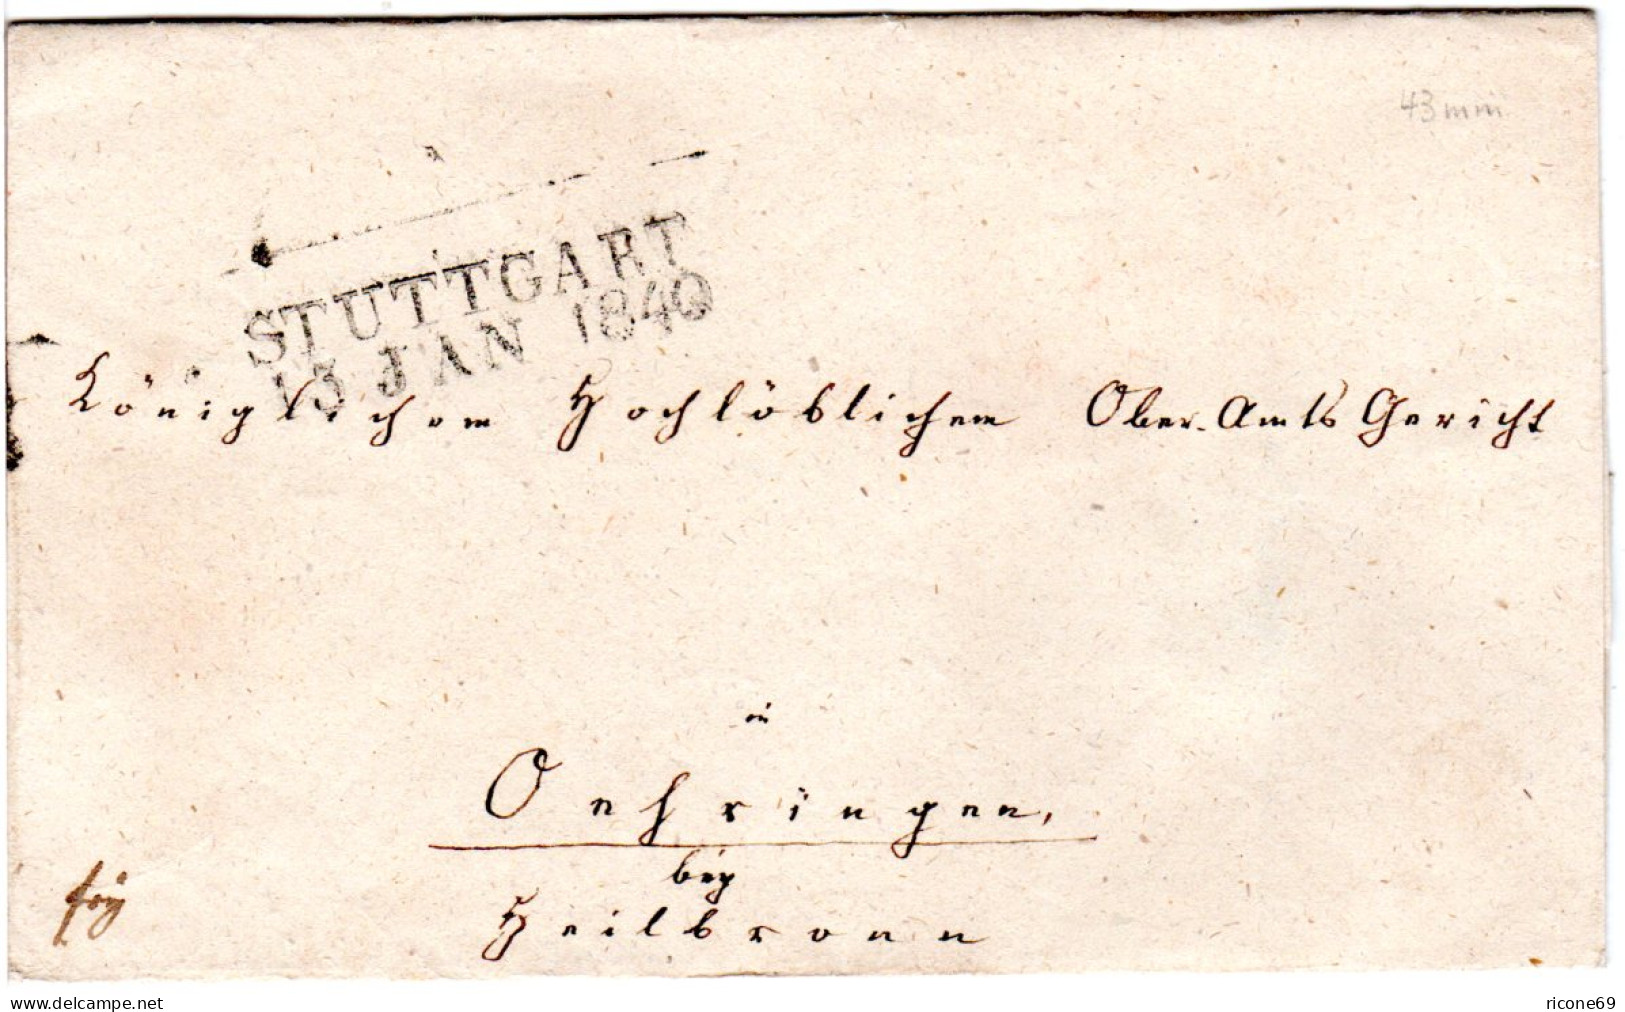 43 mm
STUTTGART
13 JAN 1840
Königlichem Hochlöblichem Ober-Amts Gericht
in
Oehringen,
bey
Heilbronn
www.delcampe.net
ricone69